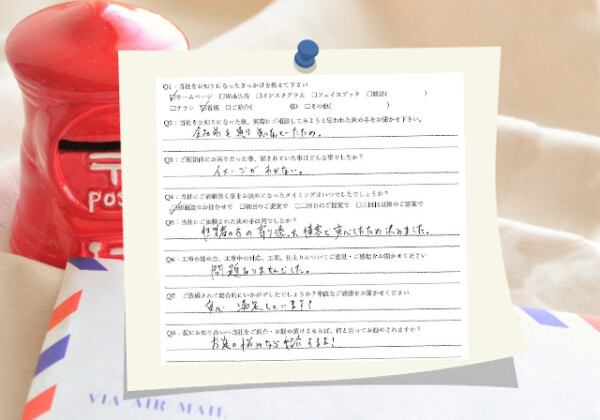 Q1：当社をお知りになったきっかけを教えて下さい
☑ホームページ □Web広告 □インスタグラム □フェイスブック □雑誌( )
□チラシ ☑看板 □ご紹介( 様) □その他( )
Q2：当社をお知りになった後、実際にご相談してみようと思われた決め手をお聞かせ下さい。
Q3：ご相談前にお困りだった事、悩まれていた事はどんな事でしたか？
イメージがわかない。
Q4：当社にご依頼頂く事をお決めになったタイミングはいつでしたでしょうか？
のお打合せで □初回のご提案で □二回目のご提案で □三回目以降のご提案で
Q5：当社にご依頼された決め手は何でしたか？
担当者の方の寄り添った提案で安心したため決めました。
Q6：工事の進め方、工事中の対応、工期、仕上りについてご意見・ご感想をお聞かせください
問題ありませんでした。
Q7 ご依頼されて総合的にいかがでしたでしょうか？率直なご感想をお聞かせください
満足しています！
Q8、仮にお知り合いへ当社をご紹介・お勧め頂けるならば、何と言ってお勧めされますか？
お庭の悩みなら
POS
VIA AIR MAIL